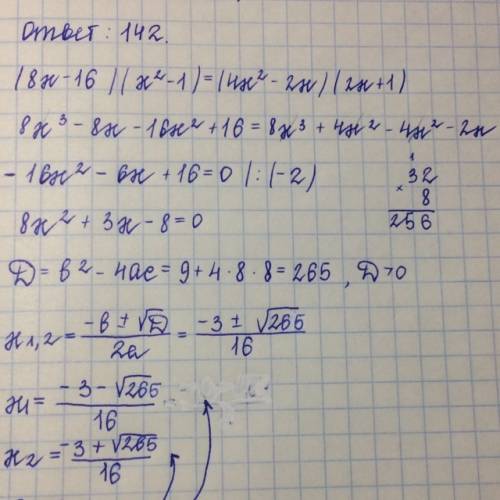 Ответ: 142.
(8x-16)(x²-1)=(4x²-2x)(2x+1)
8x³-8x-16x²+16=8x³+4x²-4x²-2x
-16x²-6x+16=0 |:(-2)
8x²+3x-8=0
1
32
× 8
256
D=b²-4ac=9+4·8·8=265, D>0
x1,2=(-b±√D)/2a=(-3±√265)/16
x1=(-3-√265)/16
x2=(-3+√265)/16